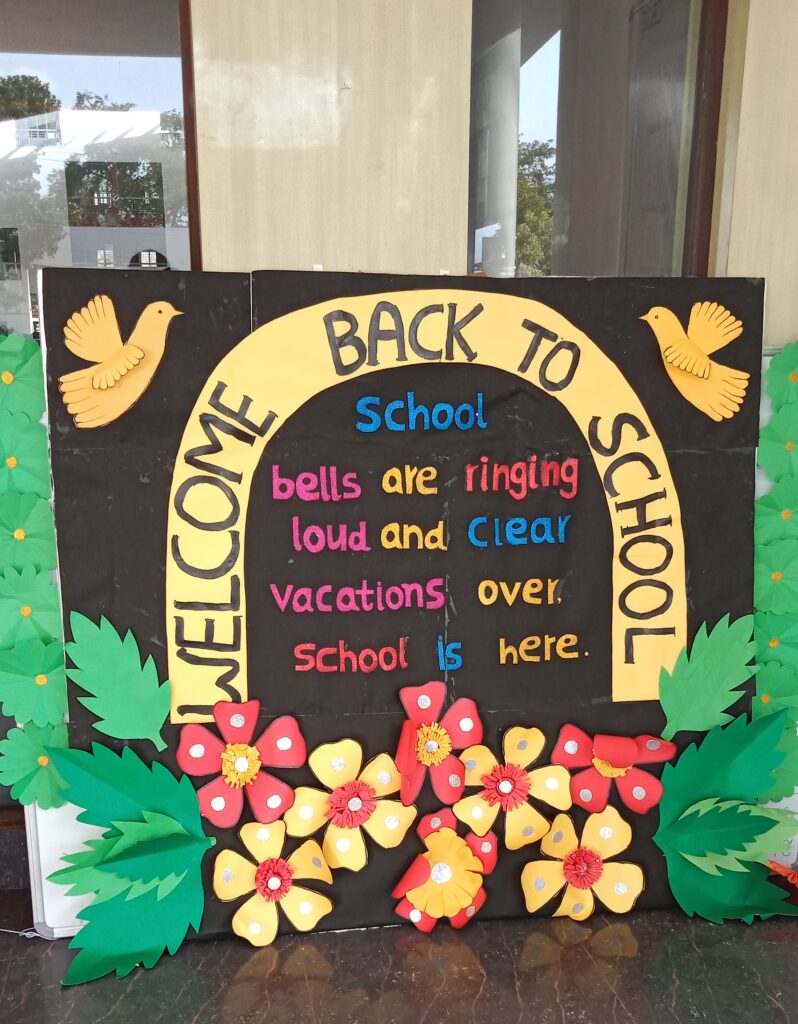 WELCOME BACK TO SCHOOL
School
bells are ringing
loud and Clear
vacations over,
School is here.